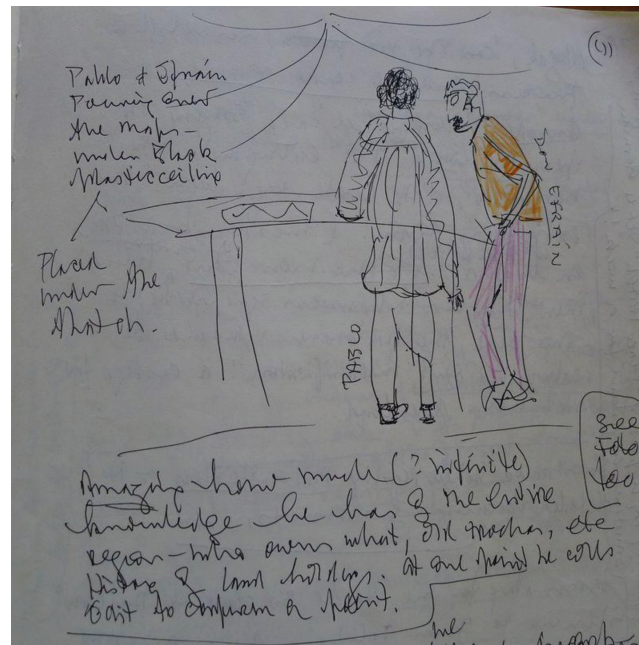 (4)
Pablo & Efraín
Pouring over
the maps—
under Black
plastic ceiling
Placed
under the
thatch.
DON EFRAÍN
PABLO
See
Foto
too
Amazing how much (? infinite)
knowledge he has of the entire
region—who owns what, old trochas, etc
History of land holdings. At one point he calls
to confirm a point.
me